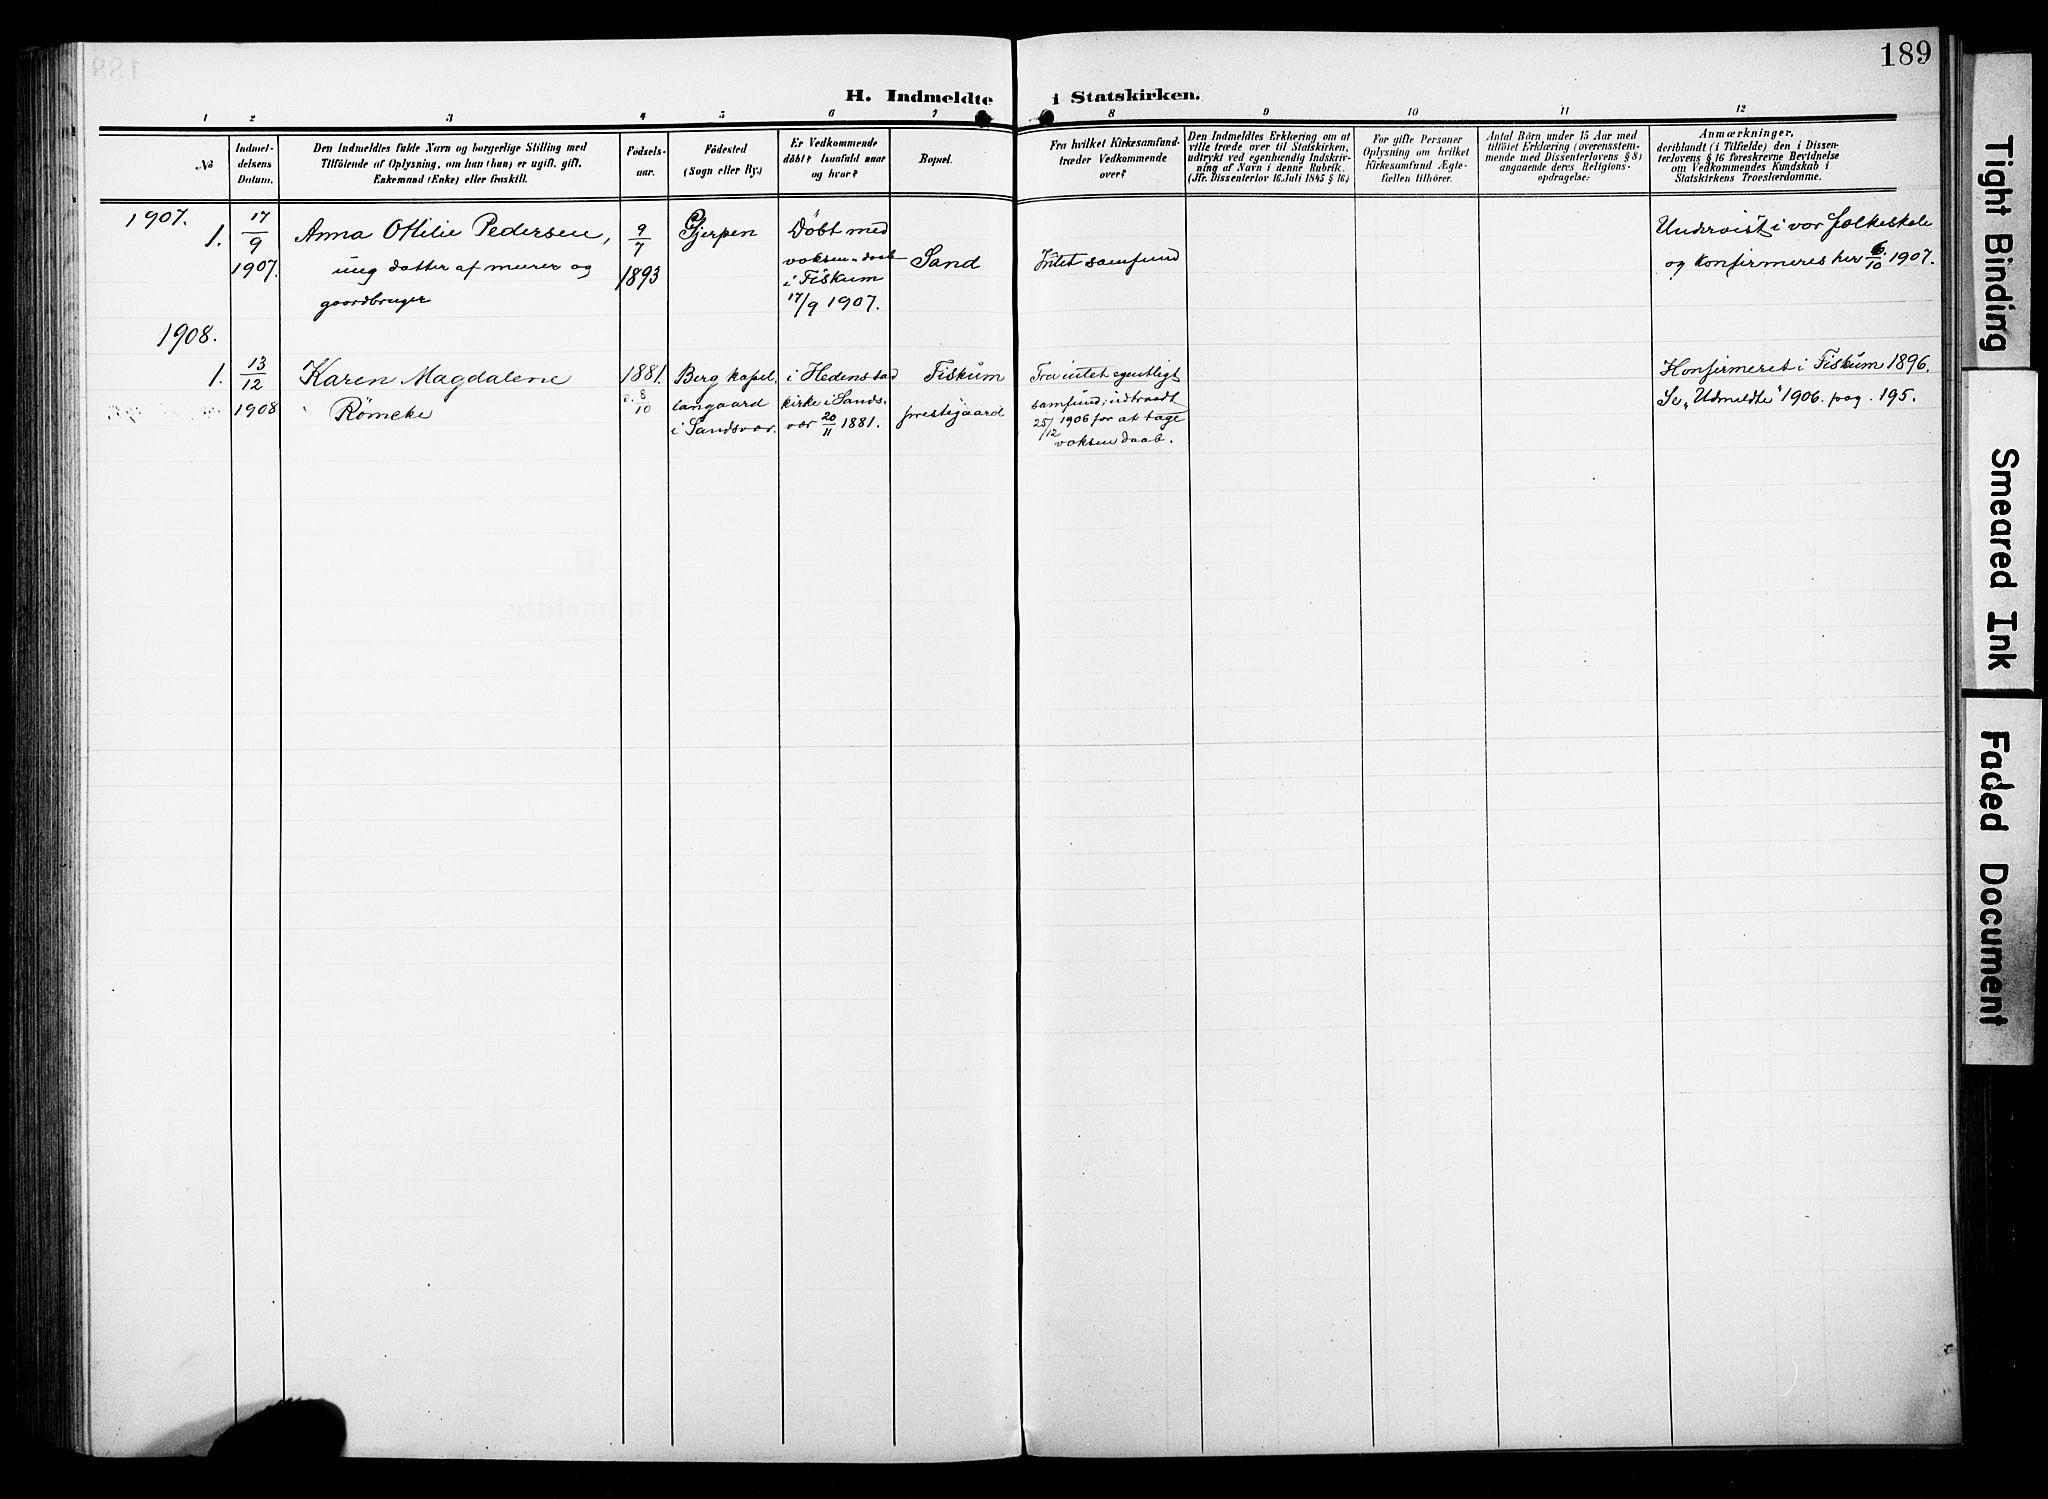 189
H. Indmeldte i Statskirken.
1 2 3 4 5 6 7 8 9 10 11 12
No
Indmel-
delsens
Datum.
Den Indmeldtes fulde Navn og borgerlige Stilling med
Tilföiende af Oplysning, om han (hun) er ugift, gift,
Enkemand (Enke) eller fraskilt.
Födsels-
aar.
Födested
(Sogn eller By.)
Er Vedkommende
döbt? Isaafald naar
og hvor?
Bopæl.
Fra hvilket Kirkesamfund
træder Vedkommende
over?
Den Indmeldtes Erklæring om at
ville træde over til Statskirken,
udtrykt ved egenhændig Indskriv-
ning af Navn i denne Rubrik.
(Jfr. Dissenterlov 16. Juli 1845 § 16)
For gifte Personer
Oplysning om hvilket
Kirkesamfund Ægte-
fællen tilhörer.
Antal Börn under 15 Aar med
tilföiet Erklæring (overensstem-
mende med Dissenterlovens § 8)
angaaende deres Religions-
opdragelse:
Anmærkninger,
deriblandt (i Tilfælde) den i Dissen-
terlovens § 16 foreskrevne Bevidnelse
om Vedkommendes Kundskab i
Statskirkens Troeslærdomme.
1907.
1.
17/9
1907.
Anna Ottilie Pedersen,
ung datter af murer og
gaardbruger
9/7
1893
Gjerpen
Döbt med
voksen-daab
i Fiskum
17/9 1907.
Sand
Intet samfund
Undervist i vor folkeskole
og konfirmeres her 6/10 1907.
1908.
1.
13/12
1908
Karen Magdalene
Römcke
1881.
8/10
Berg kapel-
langaard
i Sandsvær.
i Hedenstad
kirke i Sands-
vær 20/11 1881.
Fiskum
prestegaard
Fra intet egentligt
samfund; udtraadt
25/12 1906 for at tage
voksen daab.
Konfirmeret i Fiskum 1896.
Se „Udmeldte" 1906. pag. 195.
Tight Binding
Smeared Ink
Faded Document